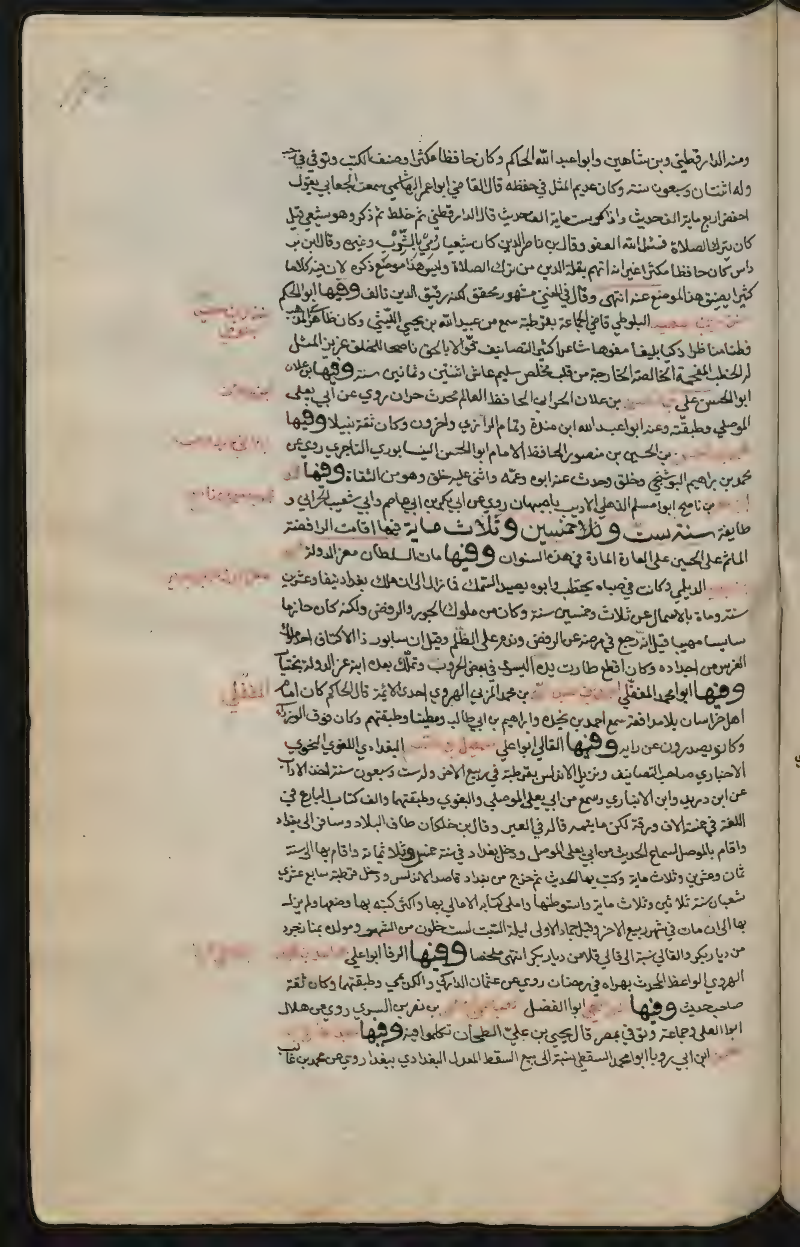 ومنه الدارقطني وبن شاهين وابوا عبد الله الحاكم وكان حافظا مكثرا وصنف الكتب وتوفي في رجب
وله اثنتان وسبعون سنة وكان عديم المثل في حفظه قال القاضي ابوا عمر الهاشمي سمعت الجعابي يقول
احفظ اربع ماية الف حديث واذاكر بست ماية الف حديث قال الدارقطني ثم خلط ثم ذكر وهو شيعي قيل
كان يترك الصلاة نسئل الله العفو وقال بن ناصر الدين كان شيعيا رمي بالشرب وغيره وقال ابن بـ
داس كان حافظا مكثرا غير انه اتهم بقلة الدين من ترك الصلاة وليس هذا موضع ذكره لان فيه كلاما
كثيرا يضيق هذا الموضع عنه انتهى وقال في المغني مشهور محقق لكنه رقيق الدين تالف وفيها ابوا الحكم
منذر بن سعيد البلوطي قاضي الجماعة بقرطبة سمع من عبيد الله بن يحيى الليثي وكان ظاهري المذهب
فطنا مناظرا ذكيا بليغا مفوها شاعرا كثير التصانيف قوالا بالحق ناصحا للخلق عزيز المثل
له الخطب المفحمة الخالصة الخارجة من قلب مخلص سليم عاش اثنتين وثمانين سنة وفيها بن علان
ابوا الحسن علي بن علان الحراني الحافظ العالم محدث حران روي عن ابي يعلى
الموصلي وطبقته وعنه ابوا عبد الله ابن مندة وتمام الرازي واخرون وكان ثقة نبيلا وفيها
بن الحسين بن منصور الحافظ الامام ابوا الحسن النيسابوري التاجري روي عن
محمد بن ابراهيم البوشنجي وخلق وحدث عنه ابوه وعمه واثنى عليه خلق وهو من الثقاة وفيها
بن ناصح ابوا مسلم الذهلي الاديب باصبهان روي عن ابي بكر بن ابي عاصم وابي شعيب الحراني و
طايفة سنة ست وخمسين وثلاث ماية فيها اقامت الرافضة
الماتم على الحسين على العادة المارة في هذه السنوات وفيها مات السلطان معز الدولة
الديلمي وكانت في صباه يحتطب وابوه يصيد السمك فما زال الى ان ملك بغداد نيفا وعشرين
سنة ومات بالاسهال عن ثلاث وخمسين سنة وكان من ملوك الجور والرفض ولكنه كان حازما
سايسا مهيبا قيل انه رجع في مرضه عن الرفض وندم على الظلم وقيل ان سابور ذا الاكتاف احد ملوك
الفرس من اجداده وكان اقطع طارت يده اليسرى في بعض الحروب وتملك بعده ابنه عز الدولة بختيار
وفيها ابوا محمد المغفلي بن محمد المزني الهروي احد الائمة قال الحاكم كان امام المغفلي
اهل خراسان بلا مدافعة سمع احمد بن نجدة وابراهيم بن ابي طالب ومطينا وطبقتهم وكان فوق الوزراء
وكانو يصدرون عن رايه وفيها القالي ابوا علي البغدادي اللغوي النحوي
الاخباري صاحب التصانيف ونزيل الاندلس بقرطبة في ربيع الاخر وله ست وسبعون سنة اخذ الاداب
عن ابن دريد وابن الانباري وسمع من ابي يعلى الموصلي والبغوي وطبقتهما والف كتاب البارع في
اللغة في خمسة الاف ورقة لكن ما يتمه قاله في العبر وقال بن خلكان طاف البلاد وسافر الى بغداد
واقام بالموصل لسماع الحديث من ابي يعلى الموصل ودخل بغداد في سنة خمس وثلاثماية واقام بها الى سنة
ثمان وعشرين وثلاث ماية وكتب بها الحديث ثم خرج من بغداد قاصد الاندلس ودخل قرطبة سابع عشري
شعبان سنة ثلاثين وثلاث ماية واستوطنها واملى كتابه الامالي بها واكثر كتبه بها وضعها ولم يزل
بها الى ان مات في شهر ربيع الاخر وقيل جماد الاولى ليلة السبت لست خلون من الشهر ومولده بمنازجرد
من ديار بكر والقالي نسبة الى قالي قلا من ديار بكر انتهى ملخصا وفيها الرفا ابوا علي
الهروي الواعظ المحدث بهراه في رمضان روي عن عثمان الدارمي والكديمي وطبقتهما وكان ثقة
صاحب حديث وفيها ابوا الفضل بن نصر بن السري روي عن هلال
ابوا العلى وجماعة وتوفي بمصر قال يحيى بن علي الطحان تكلموا فيه وفيها
ابن ابي روبا ابوا محمد السقطي نسبة الى بيع السقط المعدل البغدادي ببغداد روي عن محمد بن غالب